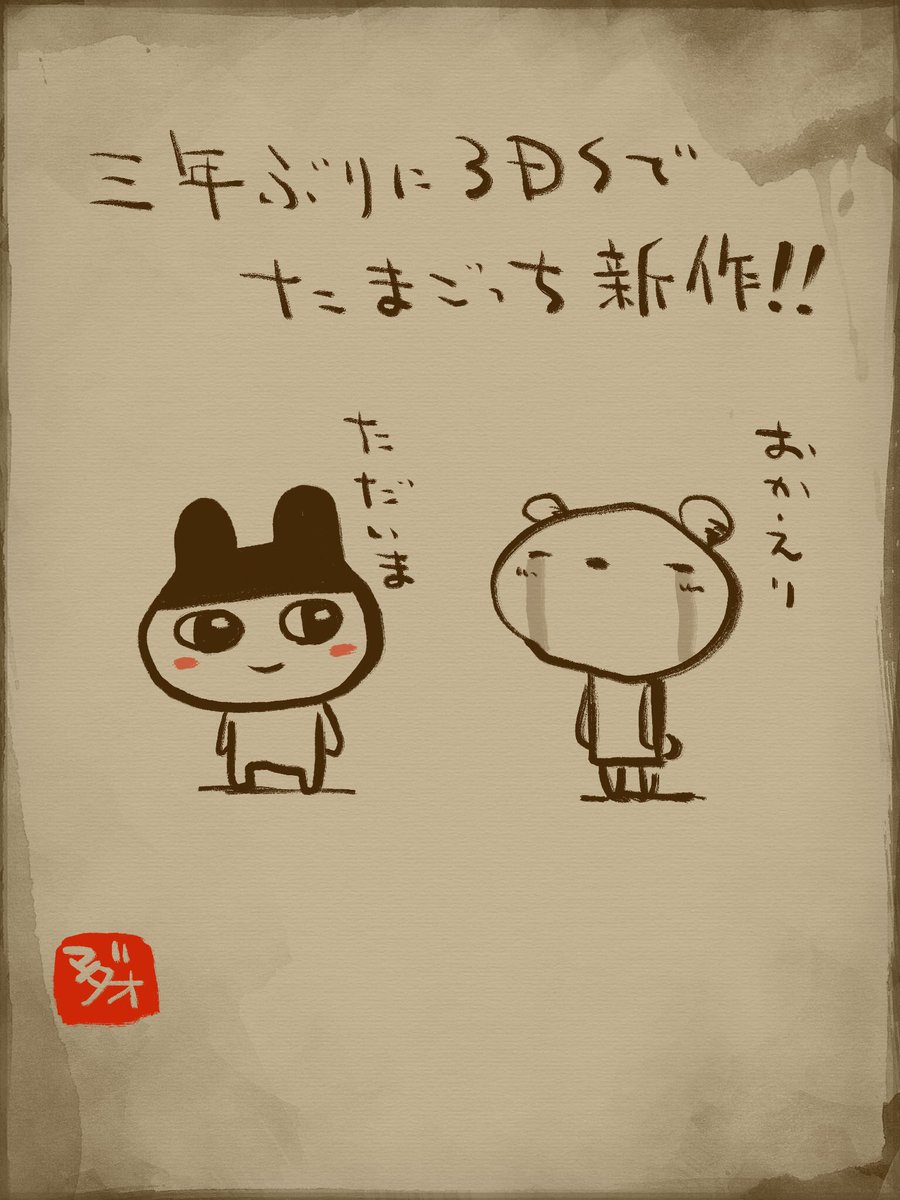 三年ぶりに3DSで
たまごっち新作!!
ただいま
おかえり
マダオ